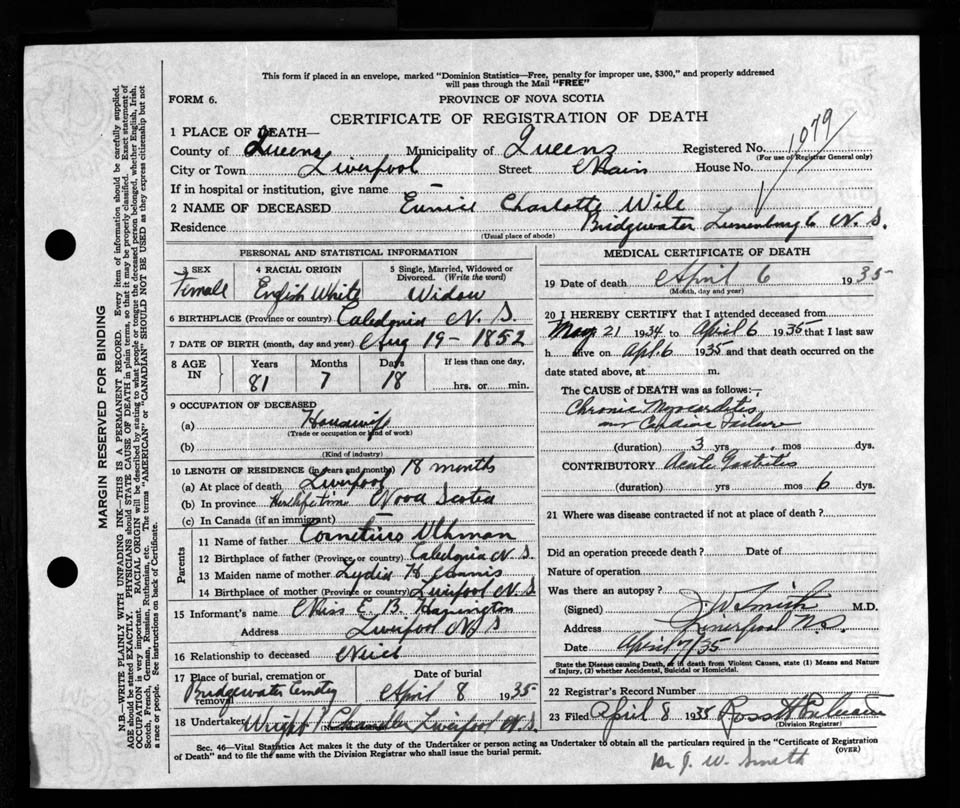 This form if placed in an envelope, marked "Dominion Statistics—Free, penalty for improper use, $300," and properly addressed
will pass through the Mail "FREE"
FORM 6.
PROVINCE OF NOVA SCOTIA
CERTIFICATE OF REGISTRATION OF DEATH
1079
1 PLACE OF DEATH—
County of Queens Municipality of Queens Registered No.
(For use of Registrar General only)
City or Town Liverpool Street Main House No.
If in hospital or institution, give name
2 NAME OF DECEASED Eunice Charlotte Wile
Residence Bridgewater Lunenburg Co N. S.
(Usual place of abode)
PERSONAL AND STATISTICAL INFORMATION
3 SEX
Female
4 RACIAL ORIGIN
English White
5 Single, Married, Widowed or Divorced. (Write the word)
Widow
6 BIRTHPLACE (Province or country) Caledonia N. S.
7 DATE OF BIRTH (month, day and year) Aug 19 - 1852
8 AGE IN
Years Months Days If less than one day,
81 7 18 hrs. or min.
9 OCCUPATION OF DECEASED
(a) Housewife
(Trade or occupation or kind of work)
(b)
(Kind of industry)
10 LENGTH OF RESIDENCE (in years and months) 18 months
(a) At place of death Liverpool
(b) In province Her lifetime Nova Scotia
(c) In Canada (if an immigrant)
Parents
11 Name of father Cornelius
12 Birthplace of father (Province or country) Caledonia N. S.
13 Maiden name of mother Lydia H
14 Birthplace of mother (Province or country) Liverpool N. S
15 Informant's name Miss E. B. Harrington
Address Liverpool N S
16 Relationship to deceased Niece
17 Place of burial, cremation or removal
Bridgewater Cemetery April 8 1935
18 Undertaker Wright Chandler Liverpool N. S.
MEDICAL CERTIFICATE OF DEATH
19 Date of death April 6 1935
(Month, day and year)
20 I HEREBY CERTIFY that I attended deceased from
May 21 1934 to April 6 1935 that I last saw
h alive on Apl. 6 1935 and that death occurred on the
date stated above, at m.
The CAUSE of DEATH was as follows:—
Chronic Myocarditis
and Cardiac Failure
(duration) 3 yrs. mos dys.
CONTRIBUTORY Acute Gastritis
(duration) yrs. mos 6 dys.
21 Where was disease contracted if not at place of death?
Did an operation precede death? Date of
Nature of operation
Was there an autopsy?
(Signed) J. W. Smith M.D.
Address Liverpool N.S.
Date April 7/35
State the Disease causing Death, or in death from Violent Causes, state (1) Means and Nature
of Injury, (2) whether Accidental, Suicidal or Homicidal.
22 Registrar's Record Number
23 Filed April 8 1935 Ross
(Division Registrar)
Sec. 46—Vital Statistics Act makes it the duty of the Undertaker or person acting as Undertaker to obtain all the particulars required in the "Certificate of Registration
of Death" and to file the same with the Division Registrar who shall issue the burial permit.
(OVER)
Dr J. W. Smith
MARGIN RESERVED FOR BINDING
N.B.—WRITE PLAINLY WITH UNFADING INK—THIS IS A PERMANENT RECORD. Every item of information should be carefully supplied.
AGE should be stated EXACTLY. PHYSICIANS should STATE CAUSE OF DEATH in plain terms, so that it may be properly classified. Exact statement of
OCCUPATION is very important. RACIAL ORIGIN will be described by stating to what people or tongue the deceased person belonged, whether English, Irish,
Scotch, French, German, Russian, Ruthenian, etc. The terms "AMERICAN" or "CANADIAN" SHOULD NOT BE USED as they express citizenship but not
a race or people. See instructions on back of Certificate.